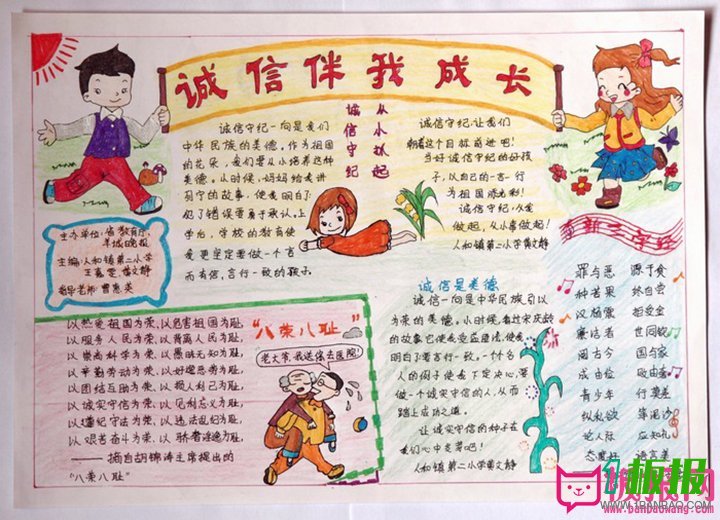 诚信伴我成长
诚信守纪一向是我们
中华民族的美德,作为祖国
的花朵,我们要从小培养这种
美德。从小时候,妈妈给我讲
列宁的故事,使我明白了:
犯了错误要勇于承认。上
学后,学校的教育使
我更坚定要做一个言
而有信,言行一致的孩子。
从小扒起
诚信守纪
诚信守纪,让我们
朝着这个目标前进吧!
当好诚信守纪的好孩
子,以自己的一言一行
为祖国添光彩!
诚信守纪,从我
做起,从小事做起!
人和镇第二小学黄文静
主办单位:省教育厅
羊城晚报
主编:人和镇第二小学
黄文静
指导老师:曹惠英
三字经
罪与恶 源于贪
种苦果 终自尝
汉杨震 拒受金
廉洁者 世同钦
阅古今 国与家
成由俭 败由奢
青少年 行莫差
纵私欲 等泥沙
论人际 应知礼
态度好 语言美
诚信是美德
诚信一向是中华民族引以
为荣的美德。小时候,看过宋庆龄
的故事它使我受益匪浅,使我
明白了要言行一致。一个个名
人的例子使我下定决心,要
做一个诚实守信的人,从而
踏上成功之道。
让诚实守信的种子在
我们心中发芽吧!
人和镇第二小学黄文静
“八荣八耻”
老大爷,我送您去医院!
以热爱祖国为荣,以危害祖国为耻,
以服务人民为荣,以背离人民为耻,
以崇尚科学为荣,以愚昧无知为耻,
以辛勤劳动为荣,以好逸恶劳为耻,
以团结互助为荣,以损人利己为耻,
以诚实守信为荣,以见利忘义为耻,
以遵纪守法为荣,以违法乱纪为耻,
以艰苦奋斗为荣,以骄奢淫逸为耻。
——摘自胡锦涛主席提出的
“八荣八耻”
板报
WWW.1BANBAO.COM
www.banbaowang.com